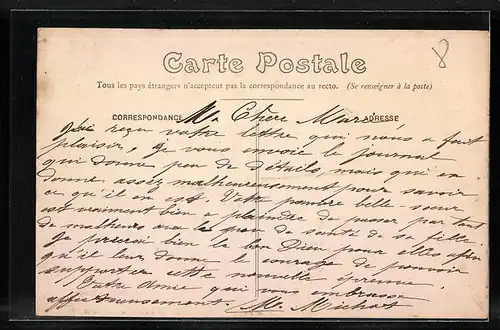 Carte Postale
8
Tous les pays étrangers n'acceptent pas la correspondance au recto. (Se renseigner à la poste)
CORRESPONDANCE ADRESSE
Ma Chère
J'ai reçu votre lettre qui nous a fait
plaisir, je vous envoie le journal
qui donne peu de détails, mais qui en
donne assez malheureusement pour savoir
ce qu'il en est. Cette pauvre belle-sœur
est vraiment bien a plaindre de passer par tant
de malheurs avec le peu de santé de sa fille.
Je prierai bien le bon Dieu pour elles afin
qu'il leur donne le courage de pouvoir
supporter cette nouvelle épreuve.
Votre Amie qui vous embrasse
affectueusement. Michot